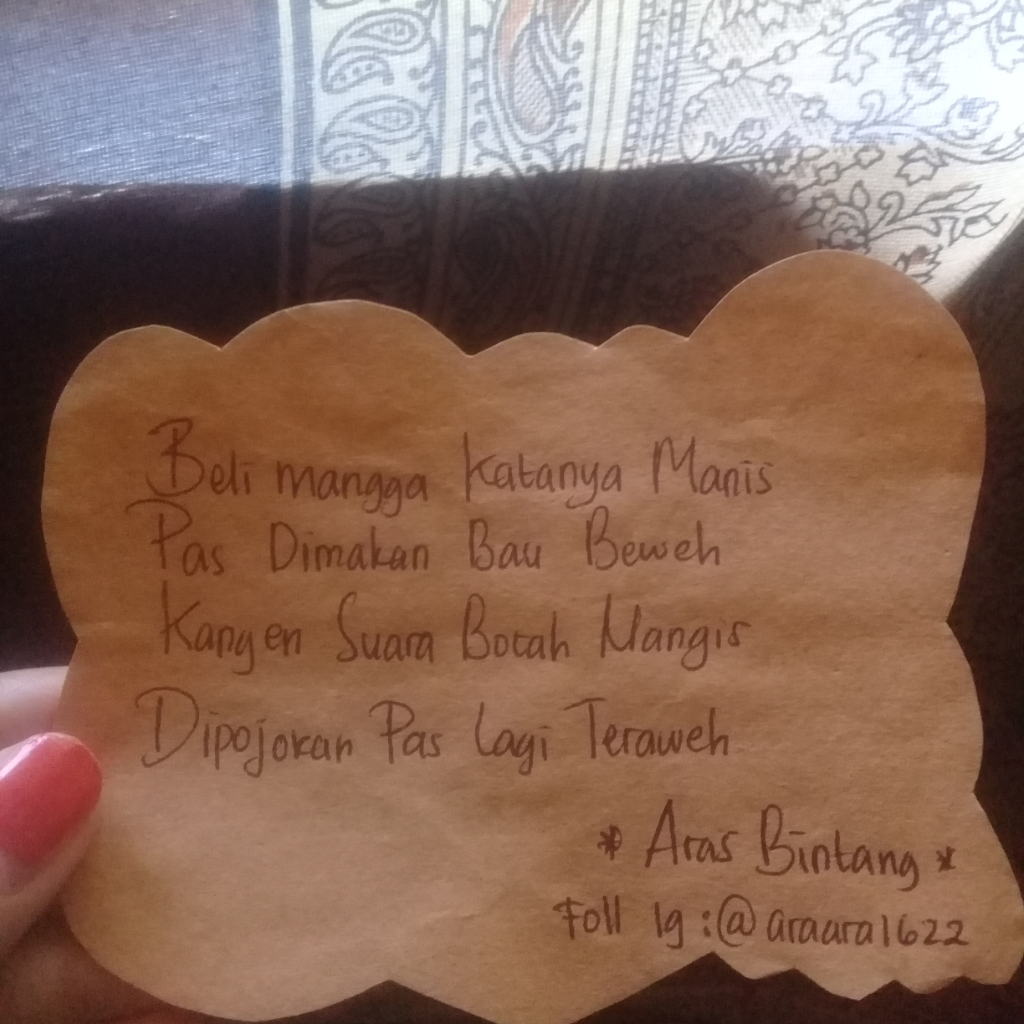 Beli mangga Katanya Manis
Pas Dimakan Bau Beweh
Kangen Suara Bocah Nangis
Dipojokan Pas Lagi Teraweh
* Aras Bintang *
Foll Ig : @ araara1622